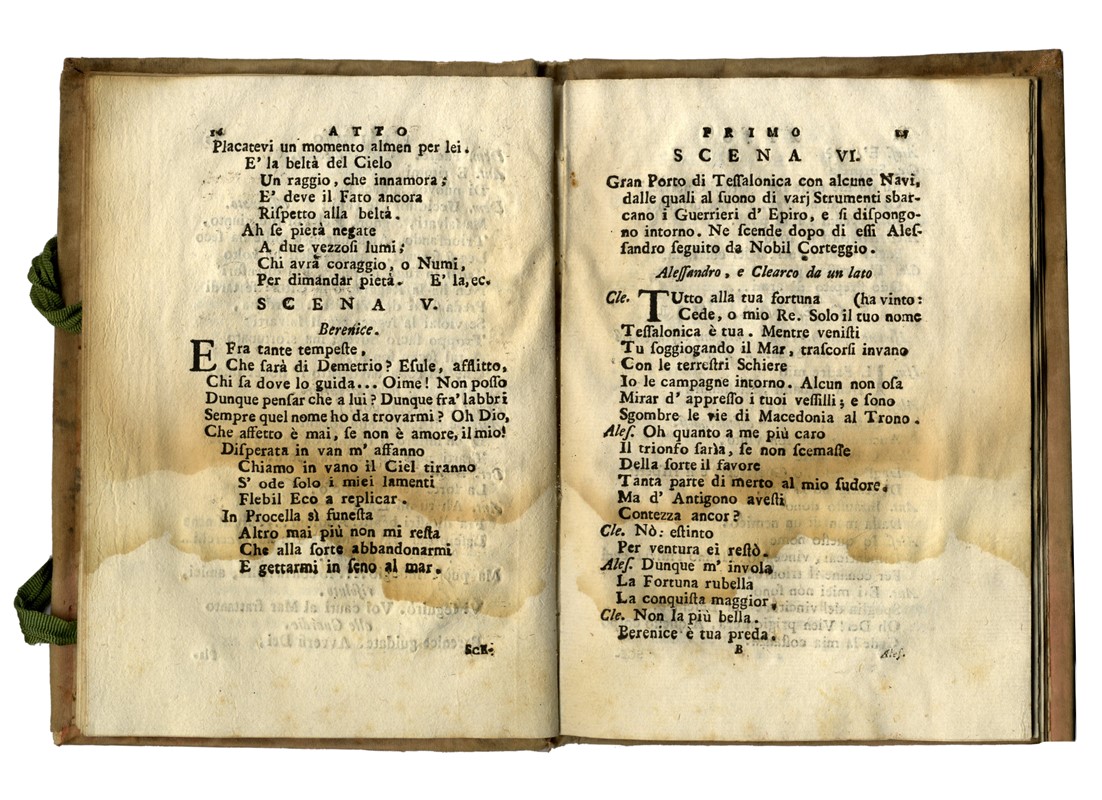 16 ATTO
Placatevi un momento almen per lei.
E' la beltà del Cielo
Un raggio, che innamora;
E' deve il Fato ancora
Rispetto alla beltà.
Ah se pietà negate
A due vezzosi lumi;
Chi avrà coraggio, o Numi,
Per dimandar pietà. E' la, ec.
SCENA V.
Berenice.
E Fra tante tempeste,
Che sarà di Demetrio? Esule, afflitto,
Chi sa dove lo guida... Oime! Non posso
Dunque pensar che a lui? Dunque fra' labbri
Sempre quel nome ho da trovarmi? Oh Dio,
Che affetto è mai, se non è amore, il mio!
Disperata in van m' affanno
Chiamo in vano il Ciel tiranno
S' ode solo i miei lamenti
Flebil Eco a replicar.
In Procella sì funesta
Altro mai più non mi resta
Che alla sorte abbandonarmi
E gettarmi in seno al mar.
SCE-
PRIMO
SCENA VI.
Gran Porto di Tessalonica con alcune Navi,
dalle quali al suono di varj Strumenti sbar-
cano i Guerrieri d' Epiro, e si dispongo-
no intorno. Ne scende dopo di essi Ales-
sandro seguito da Nobil Corteggio.
Alessandro, e Clearco da un lato
Cle. TUtto alla tua fortuna (ha vinto:
Cede, o mio Re. Solo il tuo nome
Tessalonica è tua. Mentre venisti
Tu soggiogando il Mar, trascorsi invano
Con le terrestri Schiere
Io le campagne intorno. Alcun non osa
Mirar d' appresso i tuoi vessilli; e sono
Sgombre le vie di Macedonia al Trono.
Ales. Oh quanto a me più caro
Il trionfo sarìa, se non scemasse
Della sorte il favore
Tanta parte di merto al mio sudore.
Ma d' Antigono avesti
Contezza ancor?
Cle. Nò: estinto
Per ventura ei restò.
Ales. Dunque m' invola
La Fortuna rubella
La conquista maggior.
Cle. Non la più bella.
Berenice è tua preda.
B
Ales.